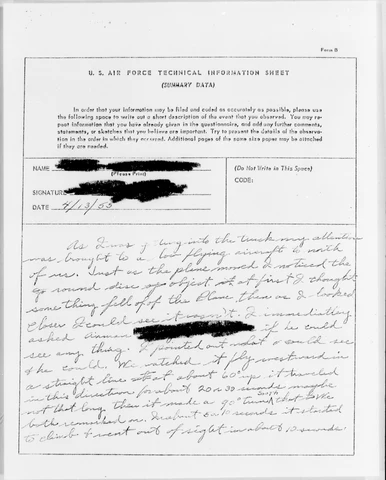 Form B
U. S. AIR FORCE TECHNICAL INFORMATION SHEET
(SUMMARY DATA)
In order that your information may be filed and coded as accurately as possible, please use
the following space to write out a short description of the event that you observed. You may re-
peat information that you have already given in the questionnaire, and add any further comments,
statements, or sketches that you believe are important. Try to present the details of the observa-
tion in the order in which they occurred. Additional pages of the same size paper may be attached
if they are needed.
NAME
(Please Print)
SIGNATURE
DATE 4/13/55
(Do Not Write in This Space)
CODE:
As I was into the truck my attention
was brought to a low flying aircraft to north
of me. Just as the plane moved I noticed the
round disc object at first I thought
something fell of of the Plane, then as I looked
closer I could see it wasn't. I immediatley
asked if he could
see any thing. I pointed out what I could see
& he could. We watched it fly westward in
a straight line at about 60° up it traveled
in this direction for about 20 or 30 seconds maybe
not that long then it made a 90° turn south that We
both remarked on. In about 8 or 10 seconds it started
to climb & went out of sight in about 10 seconds.